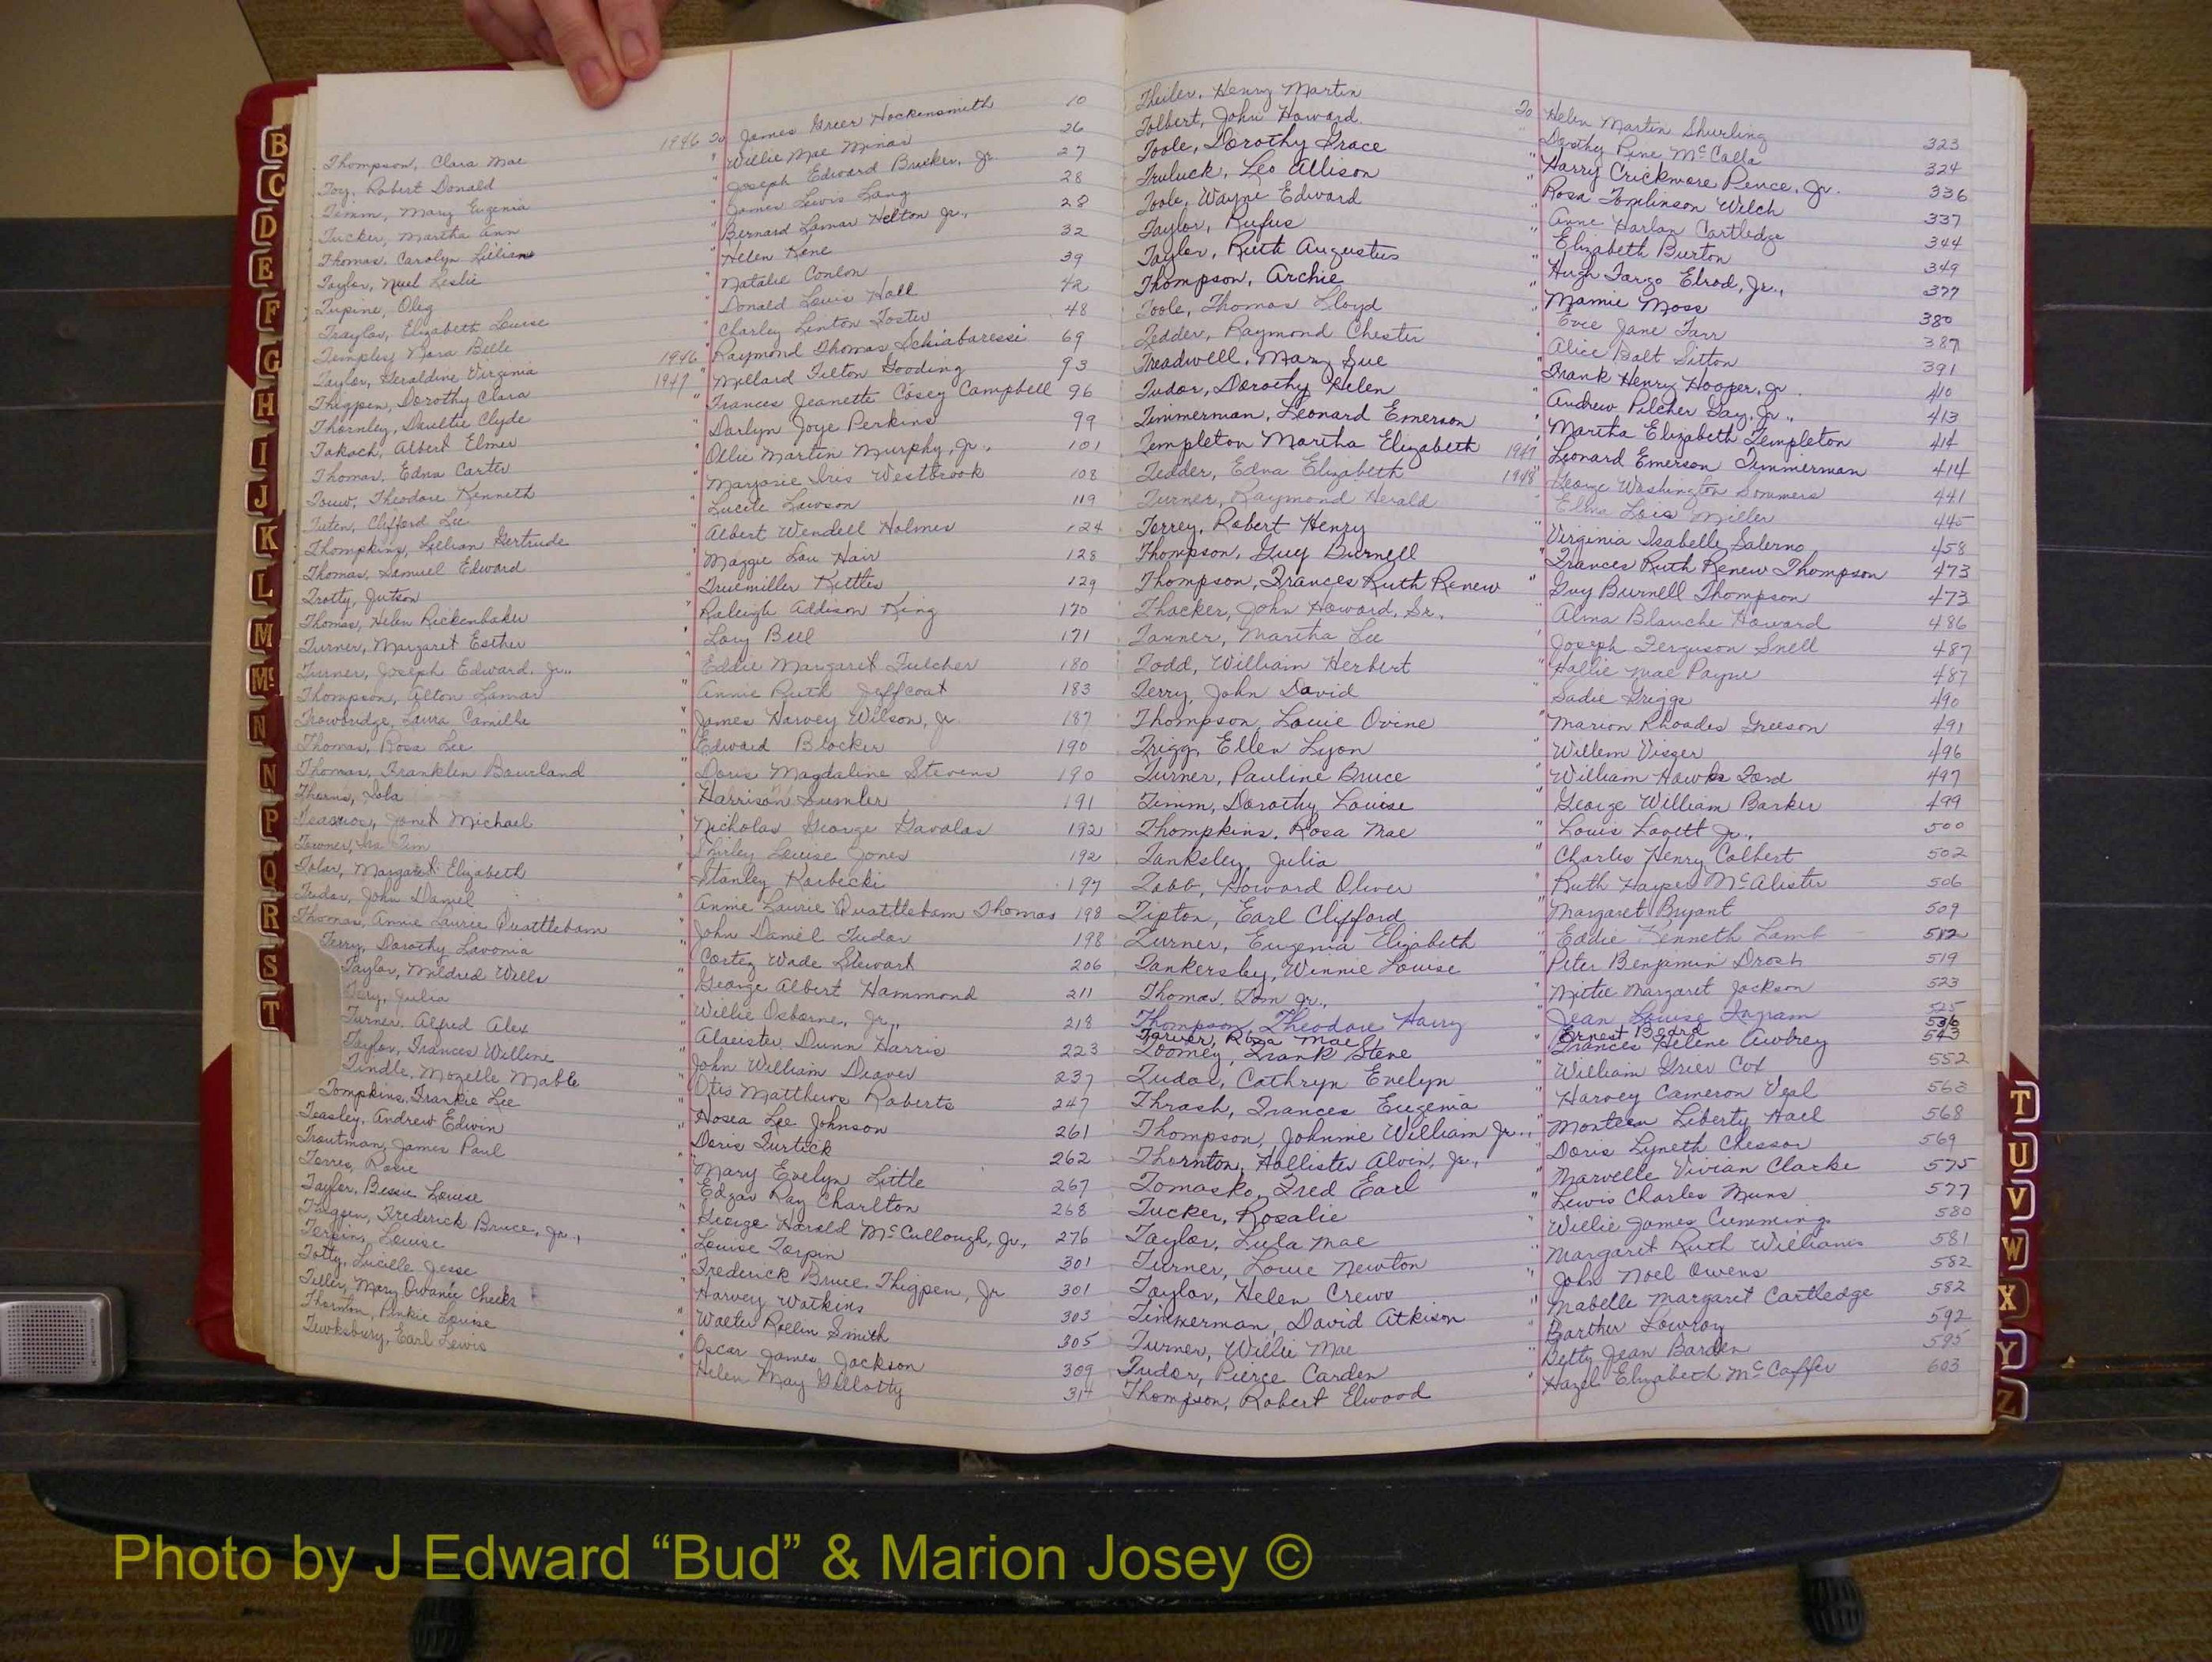 Thompson, Clara Mae 1946 To James Greer Hockensmith 10
Toy, Robert Donald " Willie Mae Minar 26
Timm, Mary Eugenia " Joseph Edward Busker, Jr. 27
Tucker, Martha Ann " James Lewis Lang 28
Thomas, Carolyn Lillian " Bernard Lamar Helton Jr., 28
Taylor, Neel Leslie " Helen Kane 32
Tupine, Oleg " Natalie Conlon 39
Traylor, Elizabeth Louise " Donald Louis Hall 42
Temples, Nora Belle " Charley Linton Foster 48
Taylor, Geraldine Virginia 1946 " Raymond Thomas Schiabaressi 69
Thigpen, Dorothy Clara 1947 " Millard Filton Gooding 93
Thornley, Daultie Clyde " Frances Jeanette Cosey Campbell 96
Takach, Albert Elmer " Darlyn Joye Perkins 99
Thomas, Edna Carter " Ollie Martin Murphy, Jr., 101
Touw, Theodore Kenneth " Marjorie Iris Westbrook 108
Tuten, Clifford Lee " Lucile Lawson 119
Thompkins, Lillian Gertrude " Albert Wendell Holmes 124
Thomas, Samuel Edward " Maggie Lou Hair 128
Trotty, Jutson " Truemiller Kettles 129
Thomas, Helen Rickenbaker " Raleigh Addison King 170
Turner, Margaret Esther " Loy Bell 171
Turner, Joseph Edward, Jr., " Eddie Margaret Fulcher 180
Thompson, Alton Lamar " Annie Ruth Jeffcoat 183
Trowbridge, Laura Camille " James Harvey Wilson, Jr. 187
Thomas, Rosa Lee " Edward Blocker 190
Thomas, Franklin Bourland " Doris Magdaline Stevens 190
Thorns, Iola " Harrison Sumler 191
Janet Michael " Nicholas George Gavalas 192
Towner, Ira Tim " Shirley Louise Jones 192
Tolar, Margaret Elizabeth " Stanley Karbecki 197
Tudor, John Daniel " Annie Laurie Quattlebam Thomas 198
Thomas, Annie Laurie Quattlebam " John Daniel Tudor 198
Terry, Dorothy Lavonia " Cortez Wade Stewart 206
Taylor, Mildred Wills " George Albert Hammond 211
Tery, Julia " Willie Osborne, Jr., 218
Turner, Alfred Alex " Alaeister Dunn Harris 223
Taylor, Frances Willine " John William Deaver 237
Tindle, Mozelle Mable " Otis Matthews Roberts 247
Tompkins, Frankie Lee " Hosea Lee Johnson 261
Teasley, Andrew Edwin " Doris Furtick 262
Troutman, James Paul " Mary Evelyn Little 267
Torres, Rosie " Edgar Ray Charlton 268
Taylor, Bessie Louise " George Harold McCullough, Jr., 276
Thigpen, Frederick Bruce, Jr., " Louise Torpin 301
Torpin, Louise " Frederick Bruce Thigpen, Jr 301
Totty, Lucille Jesse " Harvey Watkins 303
Teller, Mary Owanie Cheeks " Walter Rollin Smith 305
Thornton, Pinkie Louise " Oscar James Jackson 309
Tewksbury, Earl Lewis " Helen May Gillotty 314
Theiler, Henry Martin To Helen Martin Shurling 323
Tolbert, John Howard " Dorothy Rene McCalla 324
Toole, Dorothy Grace " Harry Crickmore Pence, Jr. 336
Truluck, Leo Allison " Rosa Tomlinson Welch 337
Toole, Wayne Edward " Anne Harlan Cartledge 344
Taylor, Rufus " Elizabeth Burton 349
Taylor, Ruth Augustus " Hugh Fargo Elrod, Jr., 377
Thompson, Archie " Mamie Moss 380
Toole, Thomas Lloyd " Evie Jane Farr 387
Tedder, Raymond Chester " Alice Balt Sitton 391
Treadwell, Mary Sue " Frank Henry Hooper, Jr. 410
Tudor, Dorothy Helen " Andrew Pilcher Gay, Jr., 413
Timmerman, Leonard Emerson " Martha Elizabeth Templeton 414
Templeton Martha Elizabeth 1947 " Leonard Emerson Timmerman 414
Tedder, Edna Elizabeth 1948 " George Washington Sommers 441
Turner, Raymond Herald " Elma Lois Miller 445
Torrey, Robert Henry " Virginia Isabelle Salerno 458
Thompson, Guy Burnell " Frances Ruth Renew Thompson 473
Thompson, Frances Ruth Renew " Guy Burnell Thompson 473
Thacker, John Howard, Sr. " Alma Blanche Howard 486
Tanner, Martha Lee " Joseph Ferguson Snell 487
Todd, William Herbert " Hallie Mae Payne 487
Terry, John David " Sadie Griggs 490
Thompson, Louie Ovine " Marion Rhoades Greeson 491
Trigg, Ellen Lyon " Willem Visser 496
Turner, Pauline Bruce " William Hawks Ford 497
Timm, Dorothy Louise " George William Barker 499
Thompkins, Rosa Mae " Louis Lovett Jr., 500
Tanksley, Julia " Charles Henry Colbert 502
Tabb, Howard Oliver " Ruth Harper McAlister 506
Tipton, Earl Clifford " Margaret Bryant 509
Turner, Eugenia Elizabeth " Eddie Kenneth Lamb 512
Tankersley, Winnie Louise " Peter Benjamin Drosh 519
Thomas, Tom Jr., " Mittie Margaret Jackson 523
Thompson, Theodore Harry " Jean Louise Ingram 525
Tarver, Rosa Mae Ernest Beard 536
Toomey, Frank Steve " Frances Helene Awbrey 543
Tudor, Cathryn Evelyn " William Grier Cox 552
Thrash, Frances Eugenia " Harvey Cameron Veal 563
Thompson, Johnnie William Jr., " Monteen Liberty Hall 568
Thornton, Hollister Alvin, Jr., " Doris Lyneth Chesser 569
Tomasko, Fred Earl " Marvelle Vivian Clarke 575
Tucker, Rosalie " Lewis Charles Muns 577
Taylor, Lula Mae " Willie James Cummings 580
Turner, Louie Newton " Margaret Ruth Williams 581
Taylor, Helen Crews " John Noel Owens 582
Timmerman, David Atkison " Mabelle Margaret Cartledge 582
Turner, Willie Mae " Barther Lowroy 592
Tudor, Pierce Carden " Betty Jean Barden 595
Thompson, Robert Elwood " Hazel Elizabeth McCaffer 603
B
C
D
E
F
G
H
I
J
K
L
M
Mc
N
N
P
Q
R
S
T
T
U
V
W
X
Y
Z
Photo by J Edward “Bud” & Marion Josey ©